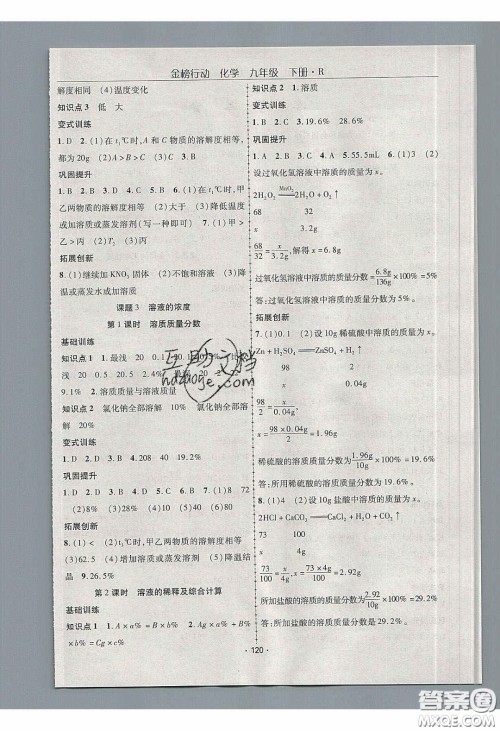 金榜行动 化学 九年级 下册·R
解度相同 (4)温度变化
知识点3 低 大
变式训练
1.D 2.(1)在t₁℃时,A和C物质的溶解度相等,
都为20g (2)A>B>C (3)B
巩固提升
1.B 2.C 3.C 4.B 5.B 6.(1)在t₁℃时,甲
乙两物质的溶解度相等 (2)大于 (3)降低温度
或加溶质(或蒸发溶剂) (4)乙 7.(1)A (2)甲
>乙>丙 (3)乙 (4)丁
拓展创新
8.(1)继续加KNO₃固体 (2)不饱和溶液 (3)降
温或蒸发水或加溶质
课题3 溶液的浓度
第1课时 溶质质量分数
基础训练
知识点1 1.最浅 20 0.1 20.1
浅 20 0.5 20.5 2.4% 最深 20
2 2.溶质质量与溶液质量
知识点2 氯化钠全部溶解 10% 氯化钠全部溶
解 20%
变式训练
1.D 2.D 3.B 4.208 40 19.2%
巩固提升
1.D 2.D 3.C 4.D 5.B 6.B 7.(1)8%
(2)8% (3)4% (4)15% (5)12%
拓展创新
8.(1)< (2)t₂℃时,甲乙两物质的溶解度相等
(3)62.5 (4)增加溶剂或蒸发溶剂 (5)降温结
晶 9.26.5%
第2课时 溶液的稀释及综合计算
基础训练
知识点1 1.A×a%=B×b% 2.Ag×a%+B
×b%=Cg×c%
知识点2 1.溶质
变式训练
1.B 2.C 3.19.6% 28.6%
巩固提升
1.A 2.B 3.C 4.A 5.55.5mL 6.(1)3 (2)
设过氧化氢溶液中溶质的质量为x。
2H₂O₂ MnO₂ ═══ 2H₂O+O₂↑
68 32
x 3.2g
68/32=x/3.2g,解得x=6.8g
过氧化氢溶液中溶质的质量分数=6.8g/136g×100%=5%
答:过氧化氢溶液中溶质的质量分数为5%。
拓展创新
7.(1)0.1g (2)设10g稀硫酸中溶质的质量为x。
Zn+H₂SO₄═══ZnSO₄+H₂↑
98 2
x 0.04g
98/x=2/0.04g
x=98×0.04g/2
x=1.96g
稀硫酸的溶质的质量分数为1.96g/10g×100%=19.6%
答:所用稀硫酸的溶质质量分数为19.6%。
8.(1)4 (2)设10g盐酸中溶质的质量为x。
2HCl+CaCO₃═══CaCl₂+CO₂↑+H₂O
73 100
x 4g
73/100=x/4g,x=2.92g
所加盐酸的溶质的质量分数=2.92g/10g×100%=29.2%
答:所加盐酸的溶质质量分数是29.2%。
·120·
互助文档
hdzaoge.com
答案圈
MXQE.COM